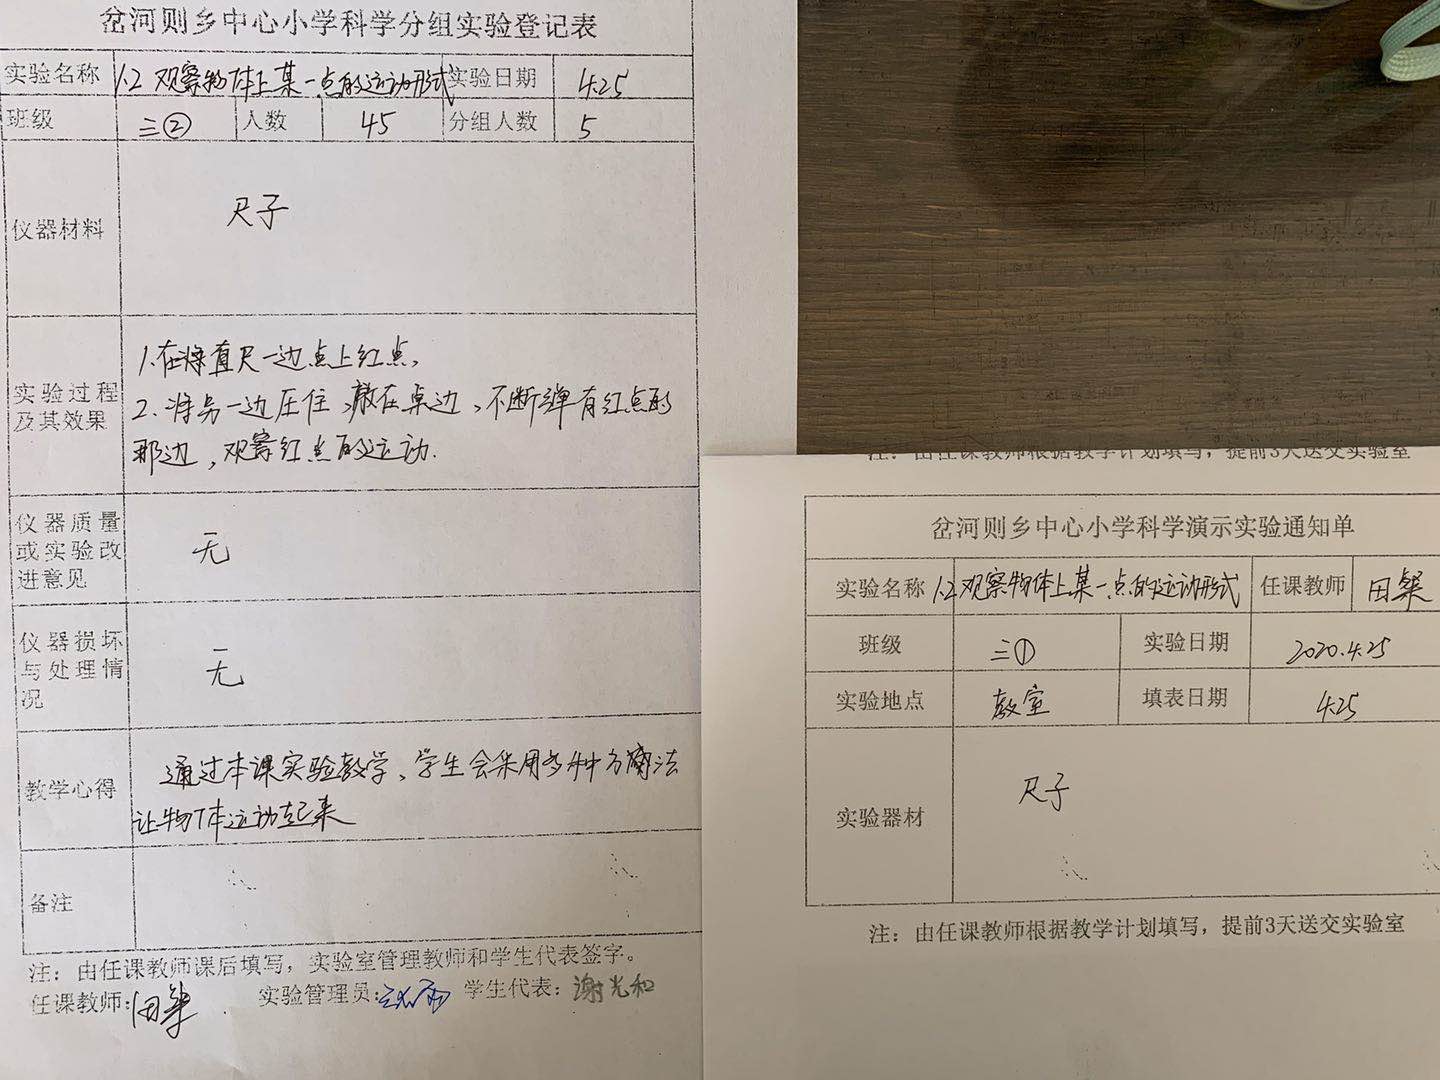 岔河则乡中心小学科学分组实验登记表
实验名称 1.2 观察物体上某一点的运动形式 实验日期 4.25
班级 三② 人数 45 分组人数 5
仪器材料 尺子
实验过程及其效果
1.在将直尺一边点上红点,
2.将另一边压住,放在桌边,不断弹有红点的
那边,观察红点的运动.
仪器质量或实验改进意见 无
仪器损坏与处理情况 无
教学心得
通过本课实验教学,学生会采用多种方法
让物体运动起来
备注
注：由任课教师课后填写，实验室管理教师和学生代表签字。
任课教师: 田 实验管理员: 学生代表：谢光和
注：由任课教师根据教学计划填写，提前3天送交实验室
岔河则乡中心小学科学演示实验通知单
实验名称 1.2 观察物体上某一点的运动形式 任课教师 田
班级 三① 实验日期 2020.4.25
实验地点 教室 填表日期 4.25
实验器材 尺子
注：由任课教师根据教学计划填写，提前3天送交实验室